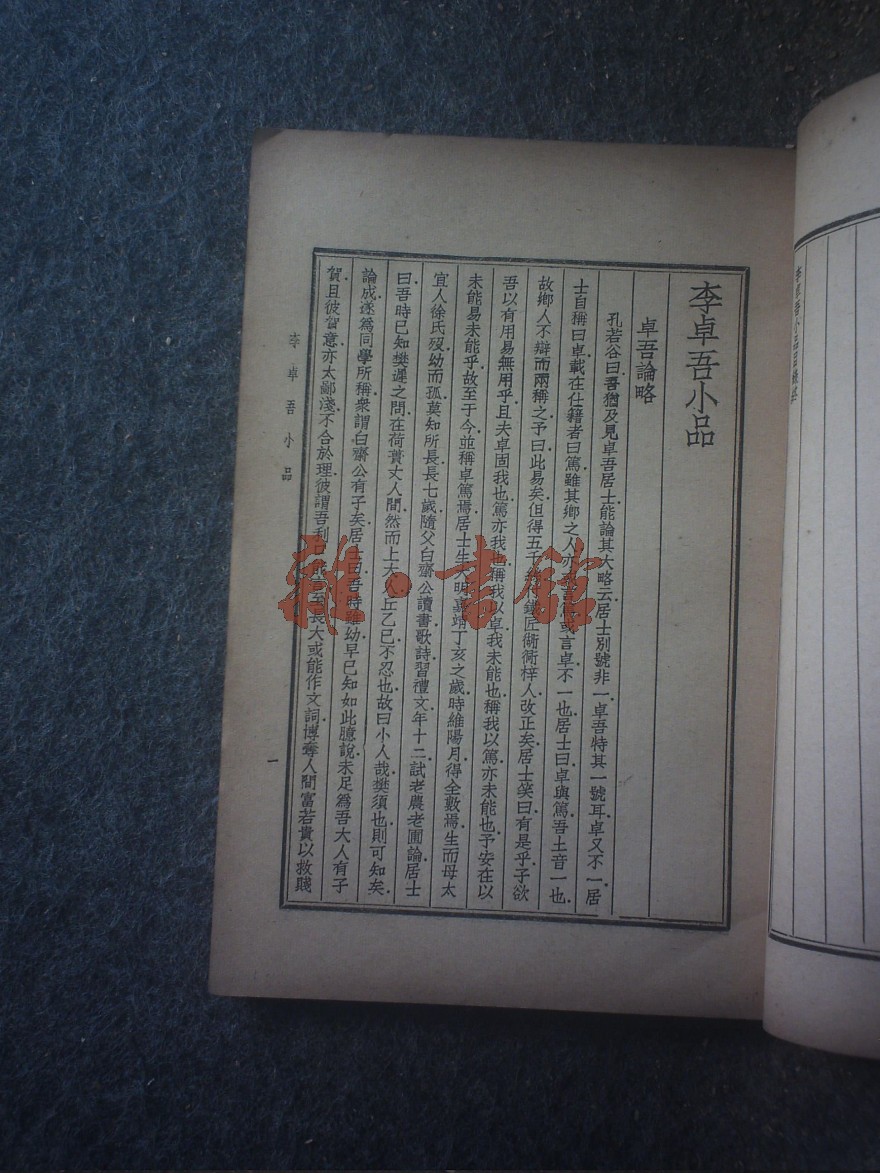 李卓吾小品
卓吾論略
孔若谷曰吾猶及見卓吾居士能論其大略云居士別號非一卓吾特其一號耳卓又不一居
士自稱曰卓載在仕籍者曰篤雖其鄉之人亦或言篤或言卓不一也居士曰卓與篤吾土音一也
故鄉人不辯而兩稱之予曰此易矣但得五千絲付鐵匠衚衕梓人改正矣居士笑曰有是乎子欲
吾以有用易無用乎且夫卓固我也篤亦我也稱我以卓我未能也稱我以篤亦未能也予安在以
未能易未能乎故至于今並稱卓篤焉居士生大明嘉靖丁亥之歲時維陽月得全數焉生而母太
宜人徐氏歿幼而孤莫知所長長七歲隨父白齋公讀書歌詩習禮文年十二試老農老圃論居士
曰吾時已知樊遲之問在荷蕢丈人間然而上大人丘乙已不忍也故曰小人哉樊須也則可知矣
論成遂為同學所稱衆謂白齋公有子矣居士曰吾時雖幼早已知如此臆說未足為吾大人有子
賀且彼賀意亦太鄙淺不合於理彼謂吾利口能言至長大或能作文詞博奪人間富若貴以救賤
李卓吾小品
一
雜·書館